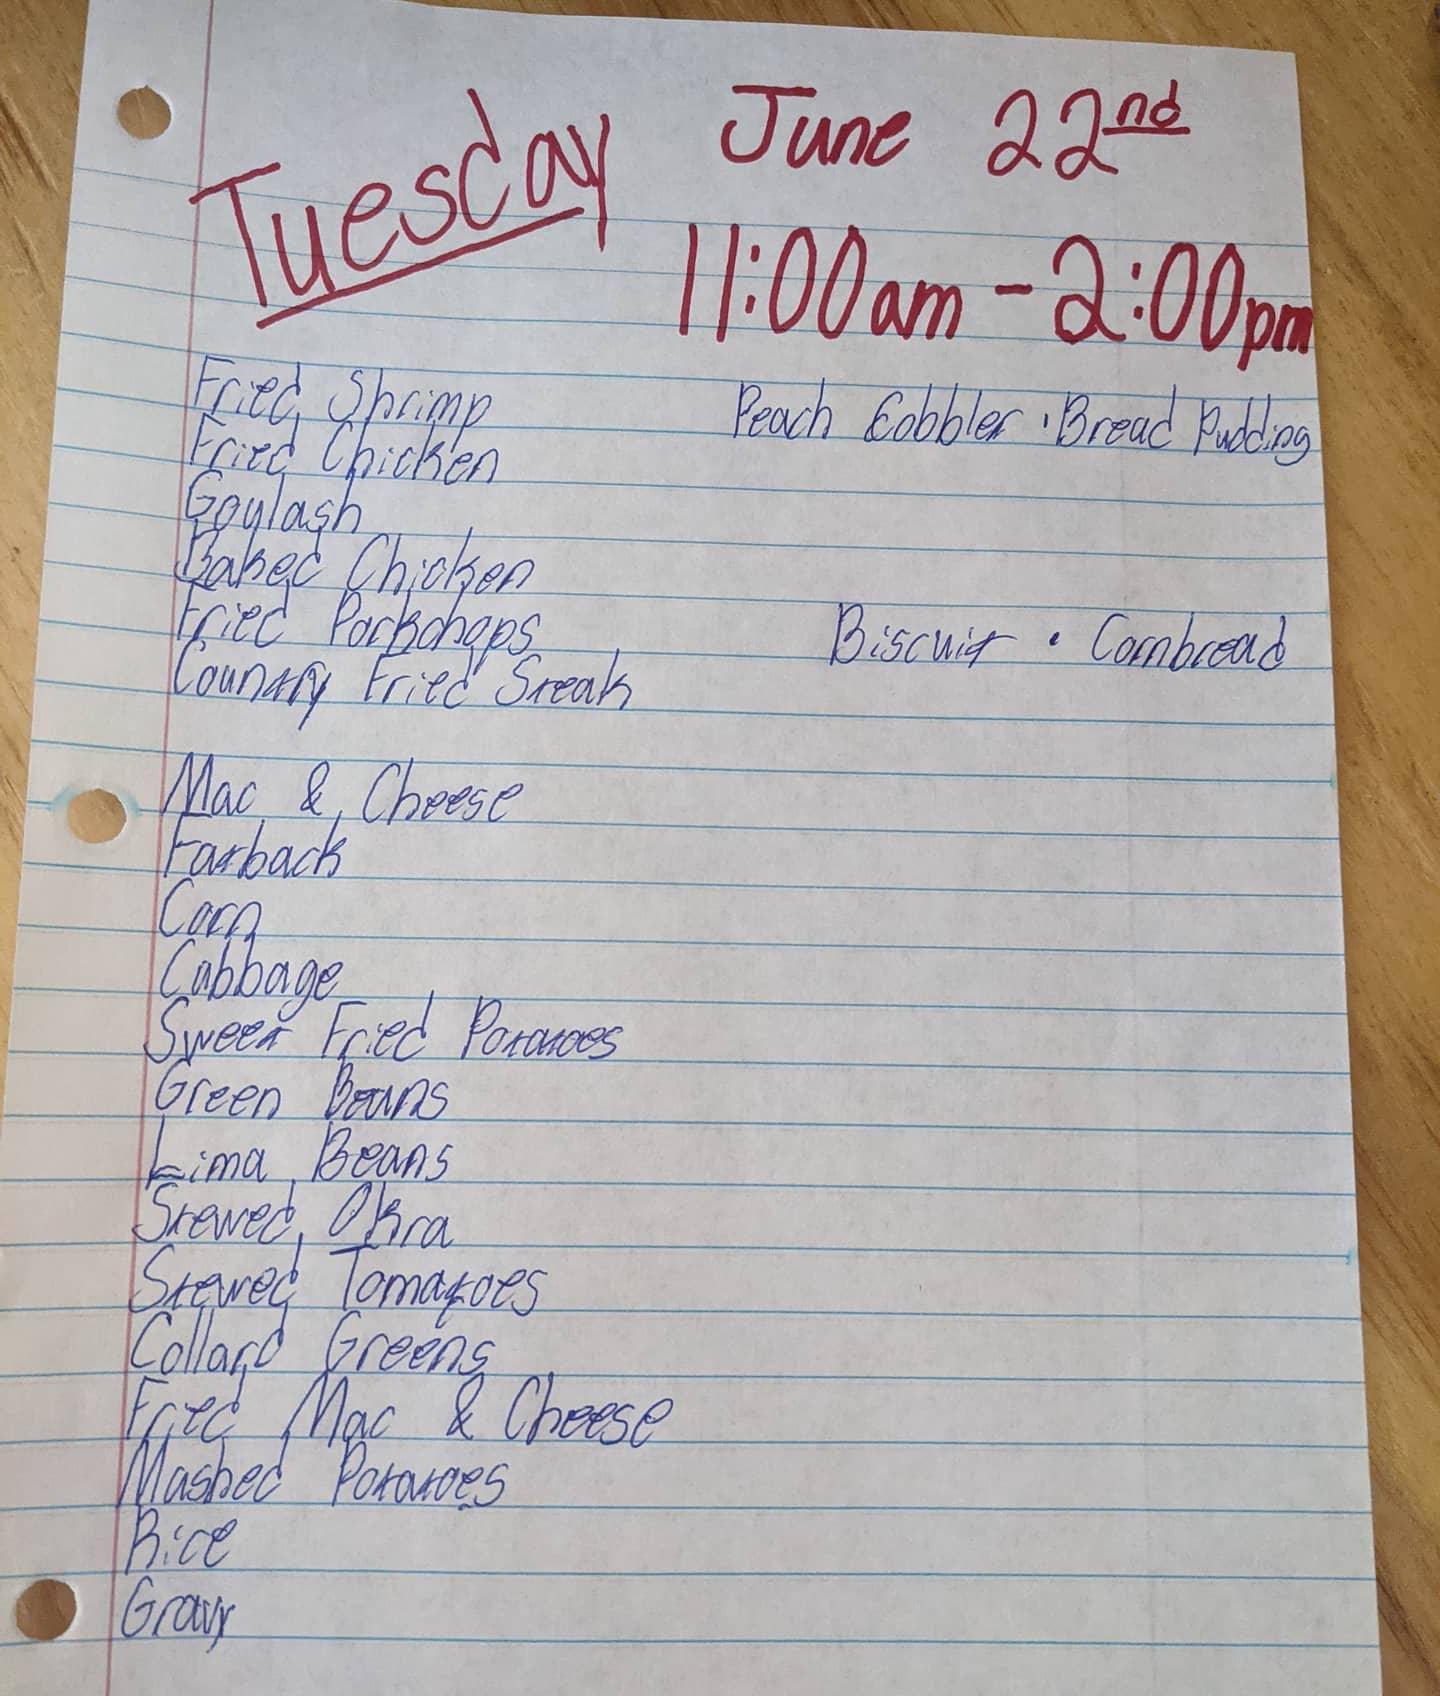 Tuesday
June 22nd
11:00am - 2:00pm
Fried Shrimp
Fried Chicken
Goulash
Baked Chicken
Fried Porkchops
Country Fried Steak
Peach Cobbler · Bread Pudding
Biscuit · Cornbread
Mac & Cheese
Fatback
Corn
Cabbage
Sweet Fried Potatoes
Green Beans
Lima Beans
Stewed Okra
Stewed Tomatoes
Collard Greens
Fried Mac & Cheese
Mashed Potatoes
Rice
Gravy